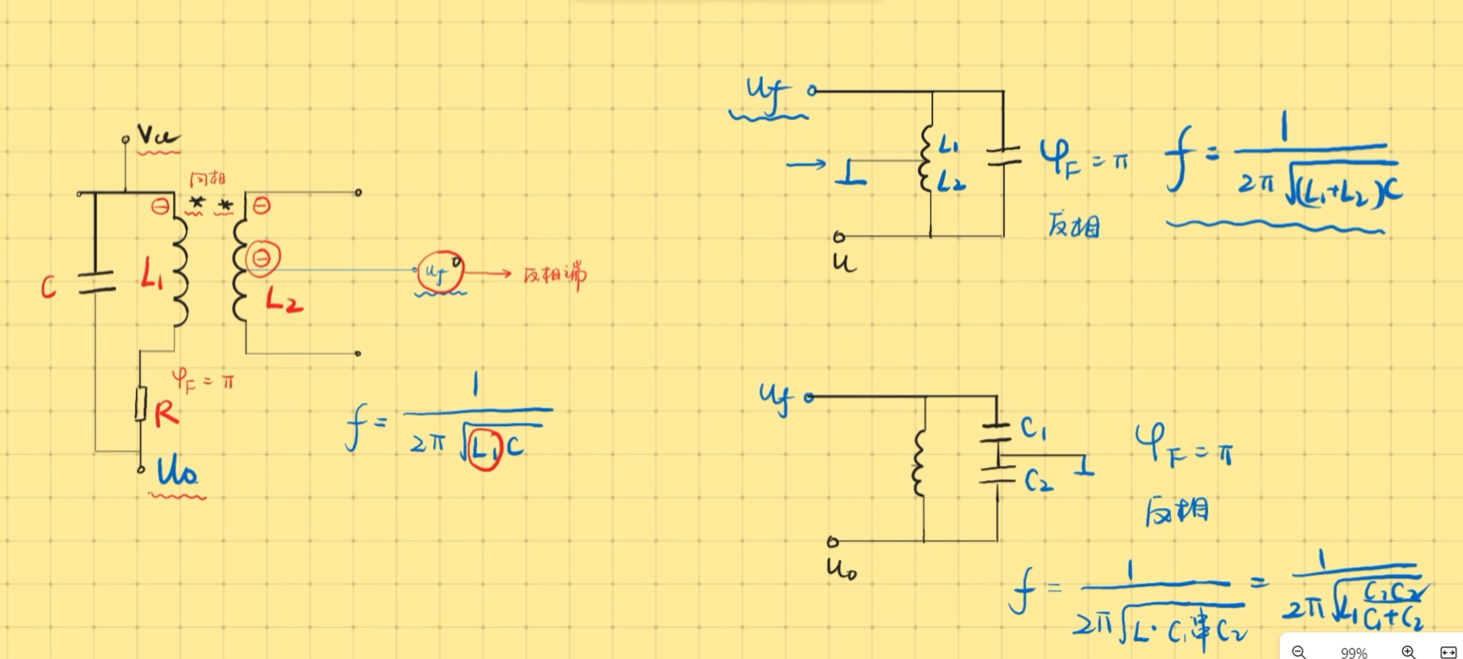 Vcc
同相
* *
⊖ ⊖
⊖
C
L₁
L₂
uf
反相端
φF = π
R
Uo
f = 1 / 2π√(L₁C)
uf
L₁
L₂
φF = π
反相
f = 1 / 2π√((L₁+L₂)C)
u
uf
C₁
C₂
φF = π
反相
uo
f = 1 / 2π√(L·C₁串C₂) = 1 / 2π√(L₁ C₁C₂ / C₁+C₂)
99%